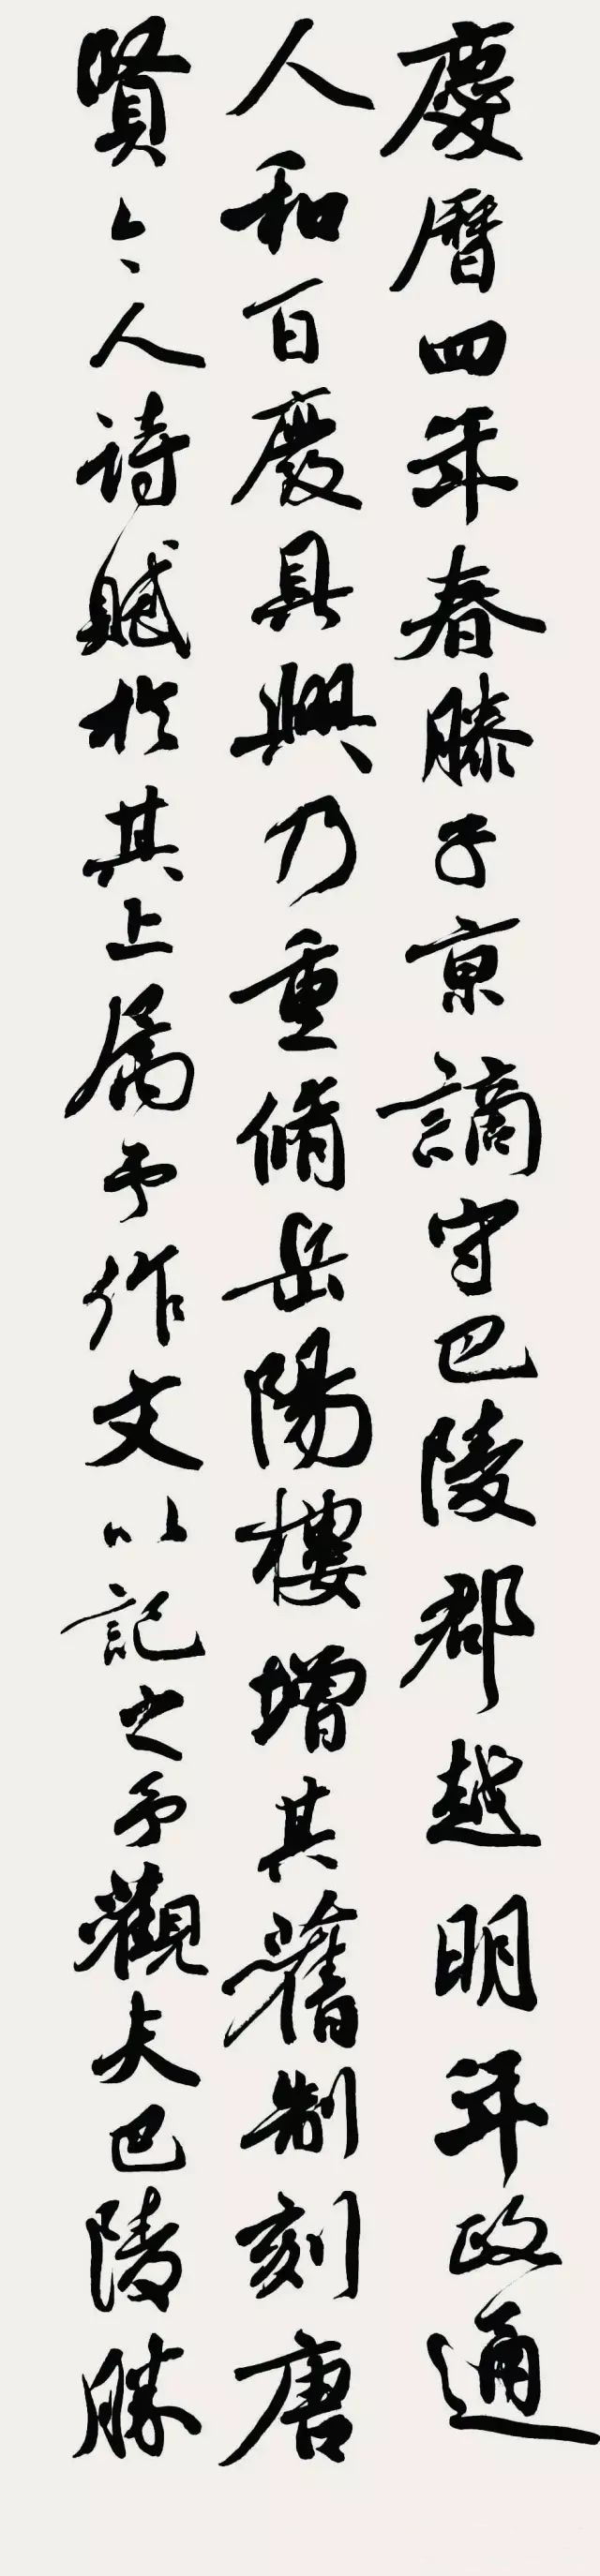 慶曆四年春滕子京謫守巴陵郡越明年政通
人和百廢具興乃重脩岳陽樓增其舊制刻唐
賢今人詩賦於其上属予作文以記之予觀夫巴陵勝